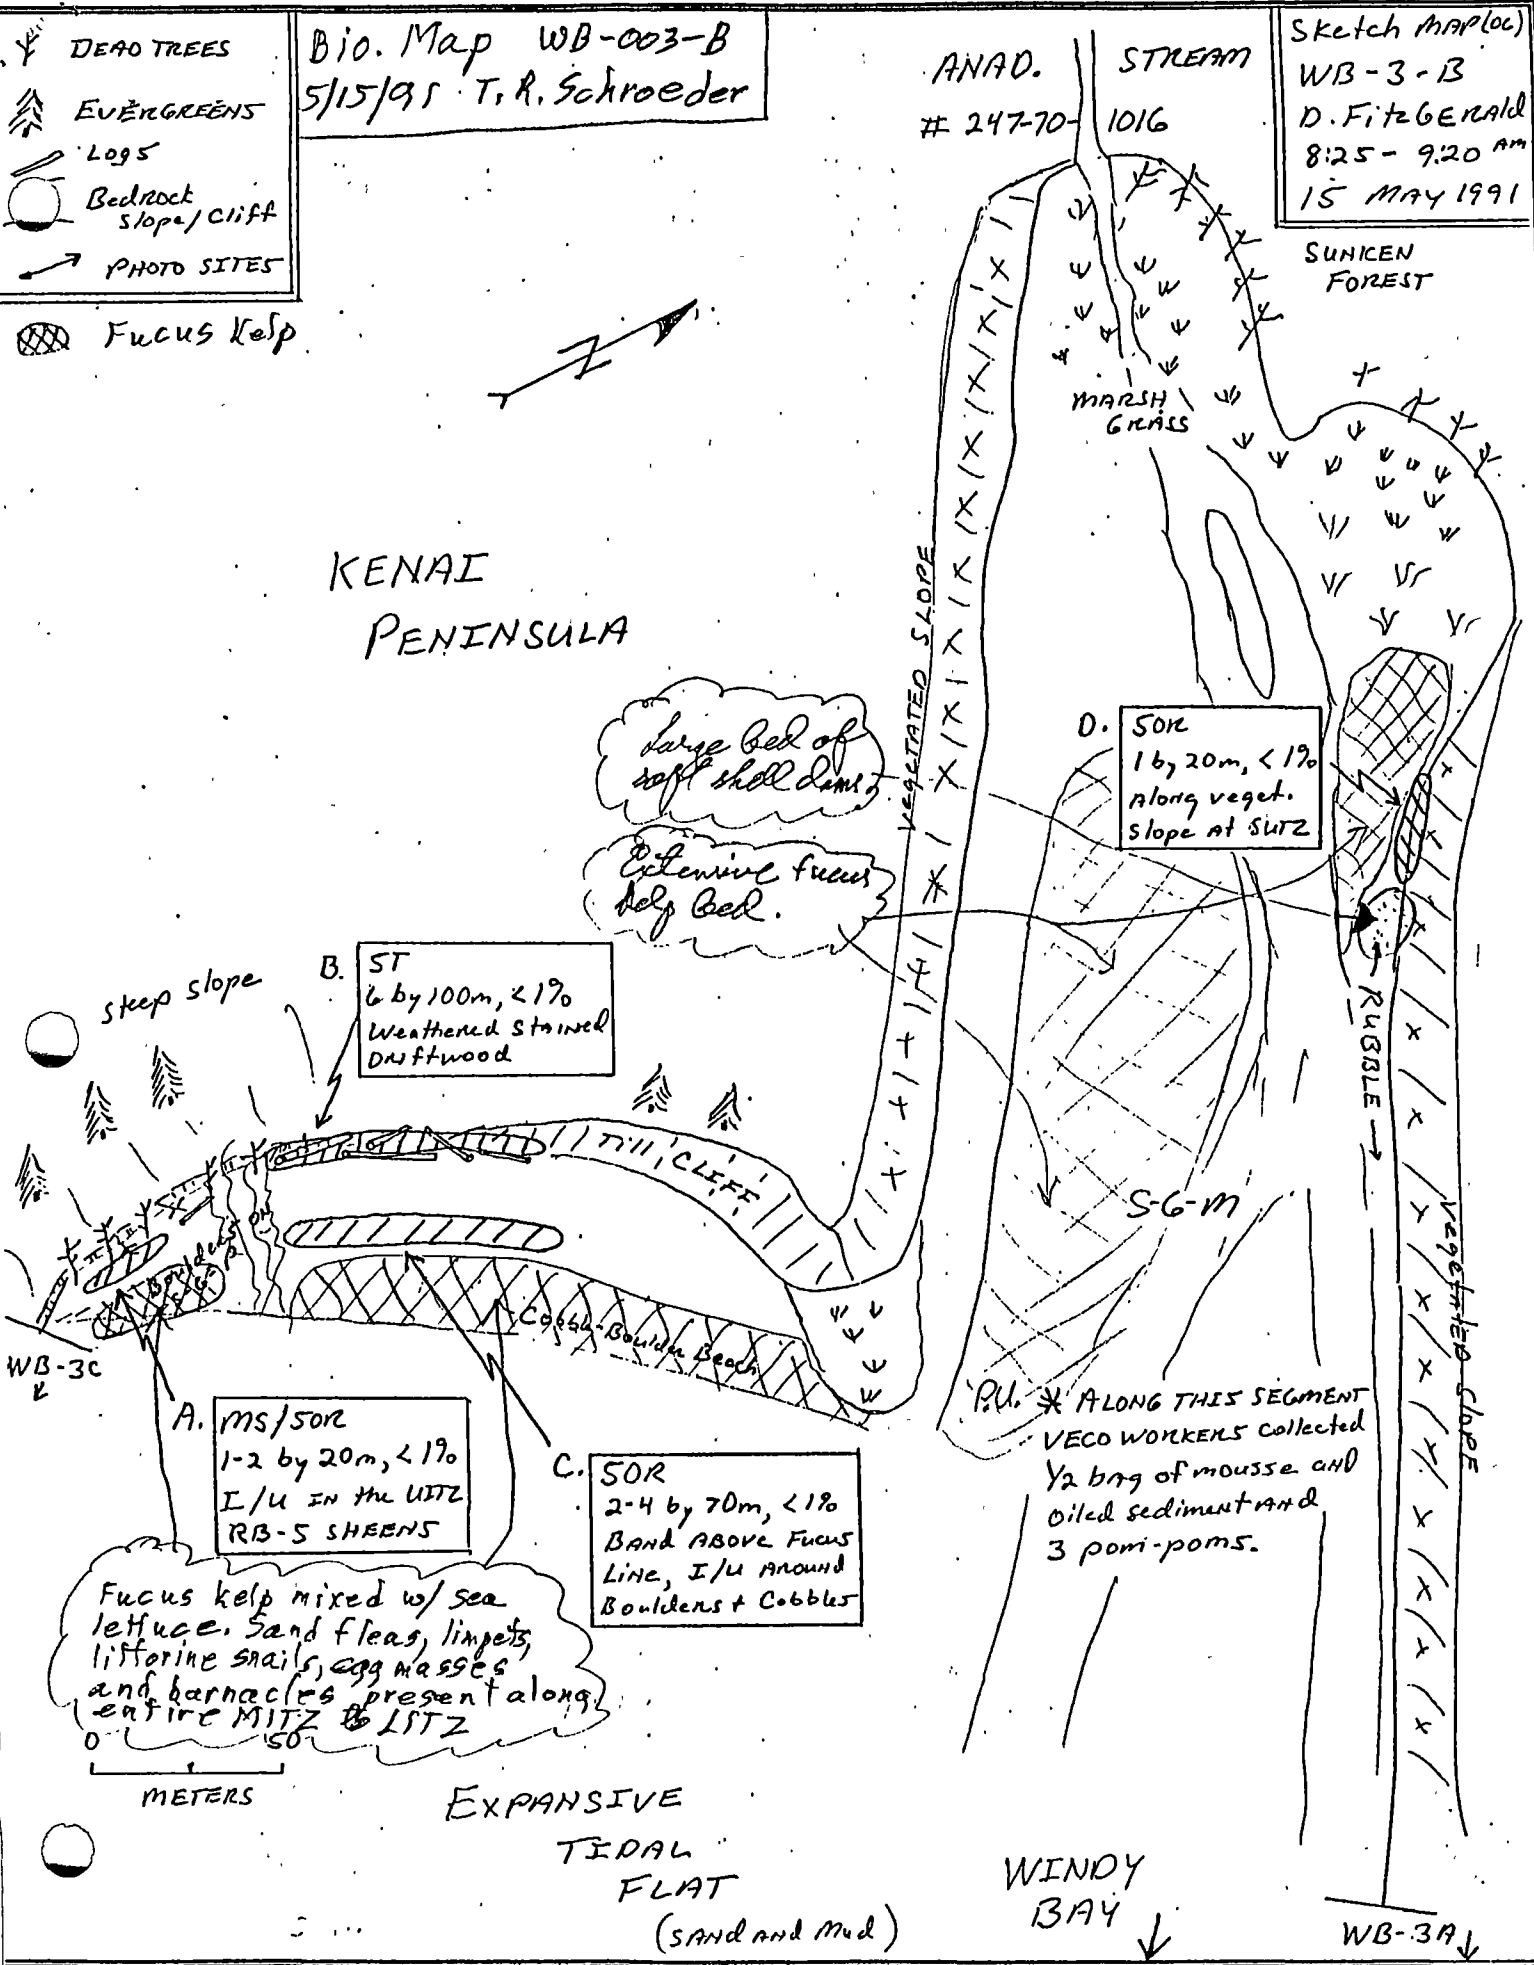 DEAD TREES
EVERGREENS
Logs
Bedrock
slope/cliff
PHOTO SITES
Fucus Kelp
Bio. Map WB-003-B
5/15/91 T.R. Schroeder
ANAD. STREAM
# 247-70- 1016
Sketch MAP(OG)
WB-3-B
D. FitzGERAld
8:25 - 9:20 AM
15 MAY 1991
SUNKEN
FOREST
N
MARSH
GRASS
KENAI
PENINSULA
VEGETATED SLOPE
Large bed of
soft shell clams.
Extensive fucus
kelp bed.
D. SOR
1 by 20m, < 1%
Along veget.
slope At SUTZ
RUBBLE
steep slope
B. ST
6 by 100m, < 1%
Weathered Stained
Driftwood
Till, CLIFF
Boulders
S-G-M
Cobble-Boulder Beach
Vegetated Slope
WB-3C
A. MS/SOR
1-2 by 20m, < 1%
I/U IN the UITZ
RB-5 SHEENS
C. SOR
2-4 by 70m, < 1%
BAND ABOVE Fucus
Line, I/U Around
Boulders + Cobbles
P.U. * ALONG THIS SEGMENT
VECO WORKERS Collected
1/2 bag of mousse and
oiled sediment AND
3 pom-poms.
Fucus kelp mixed w/ sea
lettuce. Sand fleas, limpets,
littorine snails, egg masses
and barnacles present along
entire MITZ LITZ
0 50
METERS
EXPANSIVE
TIDAL
FLAT
(SAND AND Mud)
WINDY
BAY
WB-3A